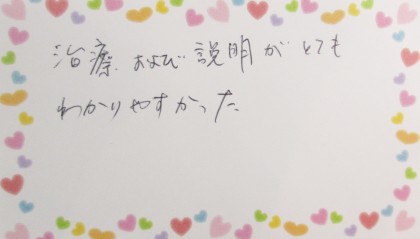 治療、および説明がとても
わかりやすかった